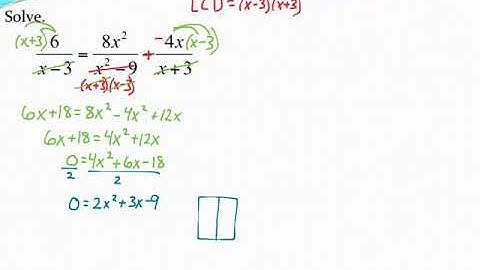 LCD = (x-3)(x+3)
Solve.
(x+3) 6 / x - 3 = 8x² / x² - 9 + -4x(x-3) / x + 3
(x+3)(x-3)
6x+18 = 8x² - 4x² + 12x
6x+18 = 4x² + 12x
0 = 4x² + 6x - 18
2 2
0 = 2x² + 3x - 9